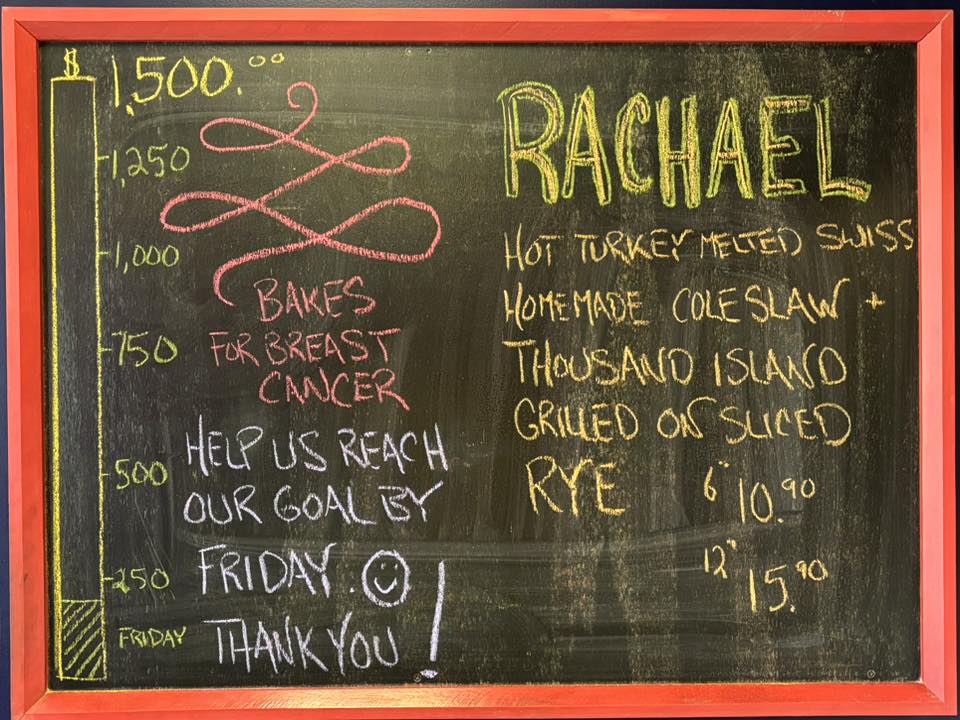 $
1,500.00
1,250
1,000
750
500
250
FRIDAY
BAKES
FOR BREAST
CANCER
HELP US REACH
OUR GOAL BY
FRIDAY. ☺
THANK YOU !
RACHAEL
HOT TURKEY MELTED SWISS
HOMEMADE COLESLAW +
THOUSAND ISLAND
GRILLED ON SLICED
RYE 6" 10.90
12" 15.90